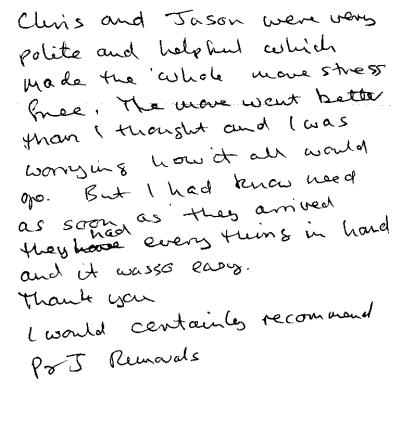 Chris and Jason were very
polite and helpful which
made the whole move stress
free. The move went better
than I thought and I was
worrying how it all would
go. But I had know need
as soon as they arrived
they had every thing in hand
and it was so easy.
Thank you
I would certainly recommend
P&J Removals